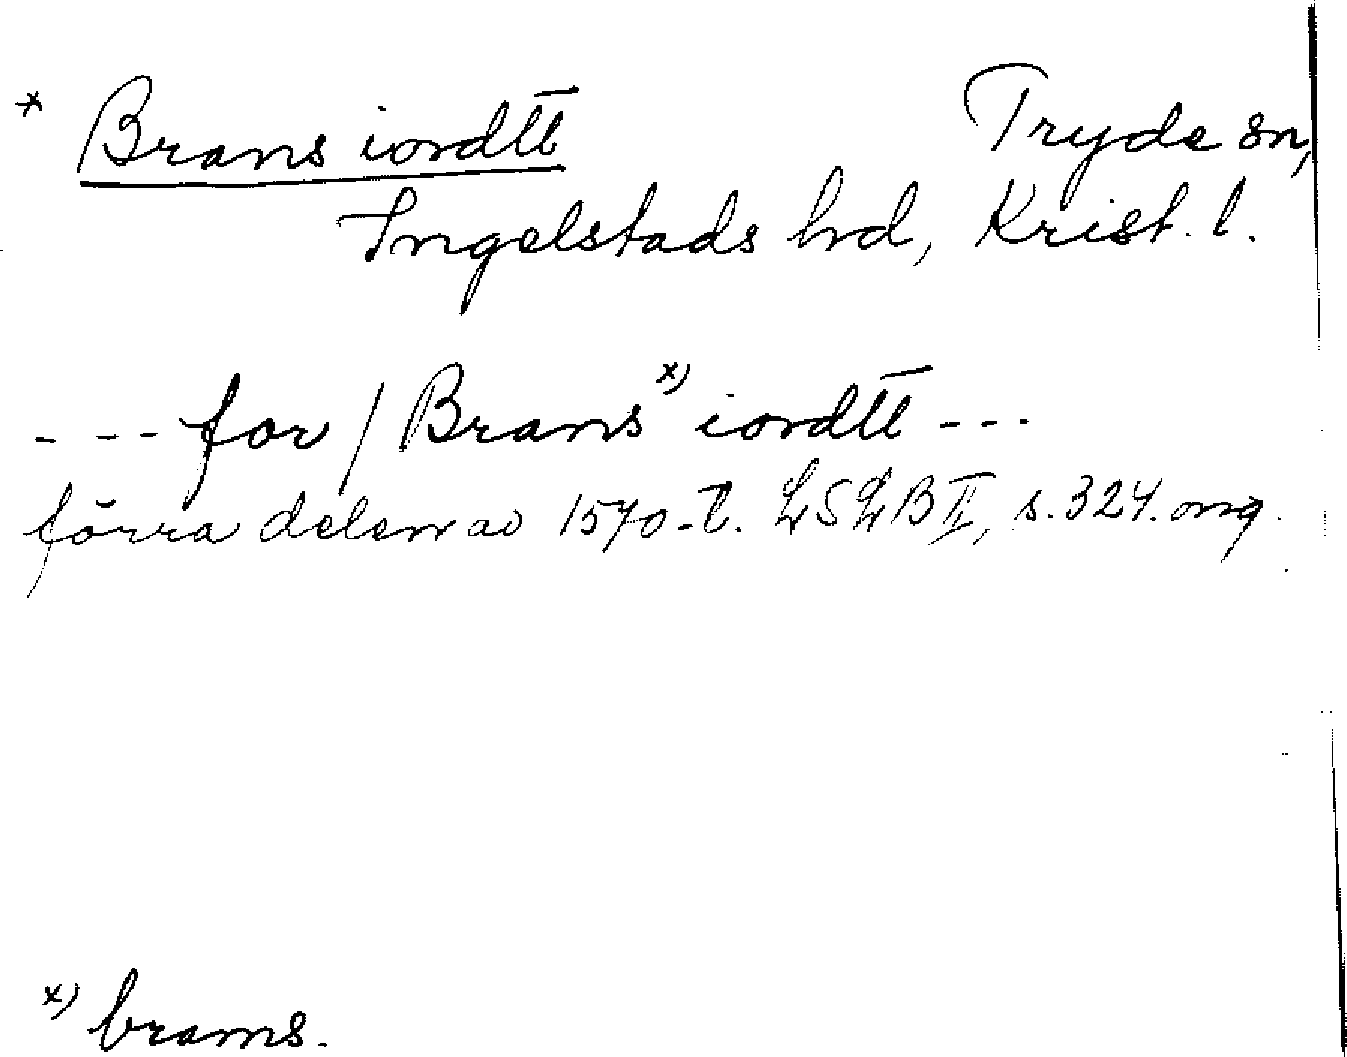 * Brans iordtt̅ Tryde sn,
Ingelstads hd, Krist. l.
- - - for / Brans x) iordtt̅ - - -
förra delen av 1570-t. LSLB II, s. 324. omg.
x) brams.